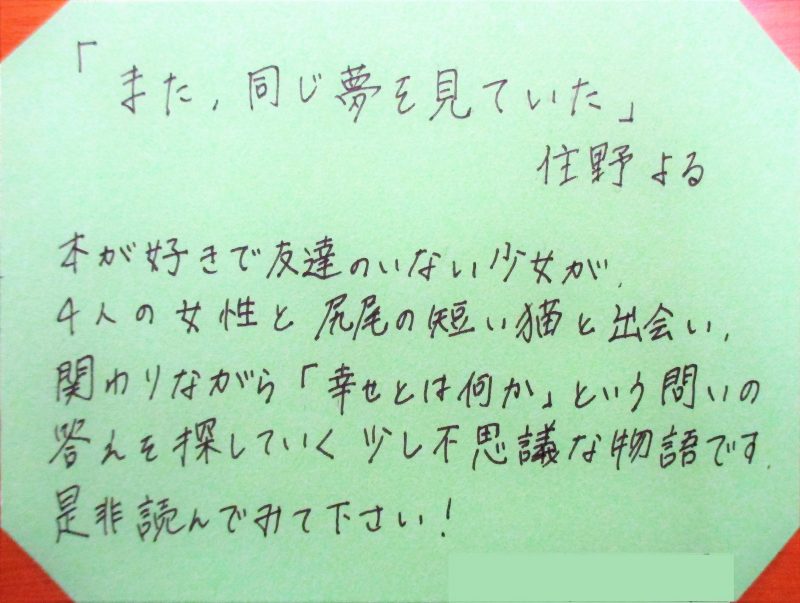 「また,同じ夢を見ていた」
住野よる
本が好きで友達のいない少女が,
4人の女性と尻尾の短い猫と出会い,
関わりながら「幸せとは何か」という問いの
答えを探していく少し不思議な物語です.
是非読んでみて下さい!